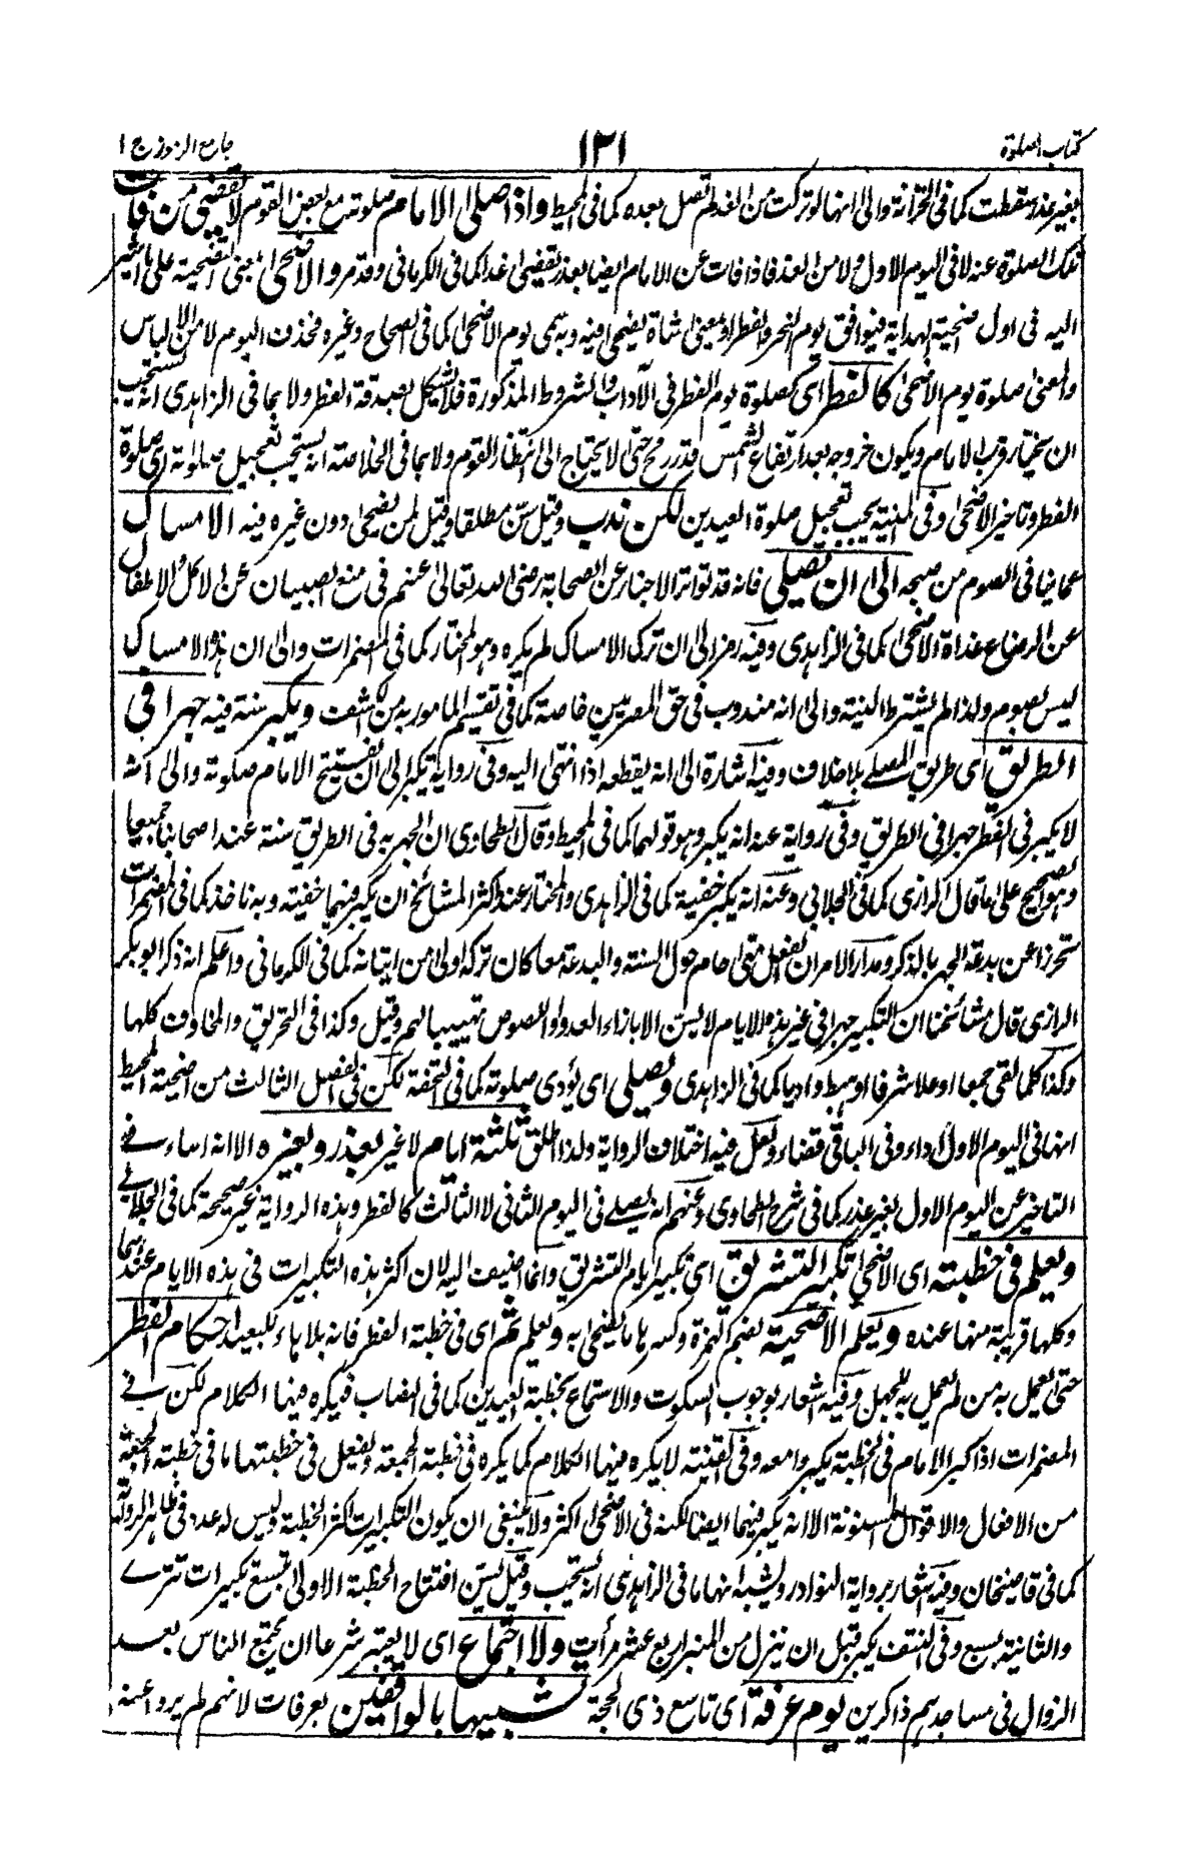 كتاب الصلوة ١٢١ جامع الرموز ج ١
بغير عذر سقطت كما فى الخزانة والى انها لو تركت من الغد لم تصل بعده كما فى المحيط واذا صلى الامام صلوته مع بعض القوم لا يقضى من فات
تلك الصلوة عنه لا فى اليوم الاول ولا من الغد فاذا فات عن الامام ايضا بعذر يقضى غدا كما فى الكرمانى وقد مر والاضحى بمعنى التضحية على ما اشير
اليه فى اول ضحية الهداية فيوافق يوم النحر والفطر او بمعنى شاة يضحى فيه وبه سمى يوم الاضحى كما فى الصحاح وغيره فحذف اليوم لامن الالباس
والمعنى صلوة يوم الاضحى كالفطر اى كصلوة يوم الفطر فى الآداب والشروط المذكورة فلا يشكل بصدقة الفطر ولا بما فى الزاهدى انه يستحب
ان يختار قرب الامام ويكون خروجه بعد ارتفاع الشمس قدر رمح حتى لا يحتاج الى انتظار القوم ولا بما فى الخلاصة انه يستحب تعجيل صلوته اى صلوة
الفطر وتاخير الاضحى وفى المنية يجب تعجيل صلوة العيدين لكن ندب وقيل سن مطلقا وقيل لمن يضحى دون غيره فيه الامساك
عما يكون فى الصوم من صبحه الى ان يصلى فانه قد تواتر الاخبار عن الصحابة رضى الله تعالى عنهم فى منع الصبيان عن الاكل والاطفال
عن الرضاع غداة الاضحى كما فى الزاهدى وفيه رمز الى ان ترك الامساك لم يكره وهو المختار كما فى المضمرات والى ان هذا الامساك
ليس بصوم ولذا لم يشترط النية والى انه مندوب فى حق المصريين خاصة كما فى تقسيم المامور به من الكشف ويكبر سنة فيه جهرا فى
الطريق اى طريق المصلى بلا خلاف وفيه اشارة الى انه يقطعه اذا انتهى اليه وفى رواية يكبر الى ان يفتتح الامام صلوته والى انه
لا يكبر فى الفطر جهرا فى الطريق وفى رواية عنه انه يكبر وهو قولهما كما فى المحيط وقال الطحاوى ان الجهر به فى الطريق سنة عند اصحابنا جميعا
وهو الصحيح على ما قال الرازى كما فى الجلابى وعنه انه يكبر خفية كما فى الزاهدى والمختار عند اكثر المشائخ ان يكبر فيهما خفية وبه ناخذ كما فى المضمرات
تحرزا عن بدعة الجهر بالذكر ومدار الامر ان الفعل متى حام حول السنة والبدعة معا كان تركه اولى من اتيانه كما فى الكرمانى واعلم انه ذكر ابو بكر
الرازى قال مشائخنا ان التكبير جهرا فى غير هذه الايام لا يسن الا بازاء العدو او اللصوص تهييبا لهم وقيل وكذا فى الحريق والمخاوف كلها
وكذا كلما لقى جمعا او علا شرفا او هبط واديا كما فى الزاهدى ويصلى اى يؤدى صلوته كما فى التحفة لكن فى الفصل الثالث من اضحية المحيط
انها فى اليوم الاول اداء وفى الباقى قضاء ولعل فيه اختلاف الرواية ولذا اطلق ثلثة ايام لا غير بعذر وبغيره الا انه اساء فى
التاخير عن اليوم الاول بغير عذر كما فى شرح الطحاوى وعنهم انه يصلى فى اليوم الثانى لا الثالث كالفطر وهذه الرواية غير صحيحة كما فى الجلابى
ويعلم فى خطبته اى الاضحى تكبير التشريق اى تكبير ايام التشريق وانما اضيف اليه لان اكثر هذه التكبيرات فى هذه الايام عندهما
وكلها قريبة منها عنده ويعلم الاضحية بضم الهمزة وكسرها ما يضحى به ويعلم ثم اى فى خطبة الفطر فانه بلا هاء للبعيد احكام الفطر
حتى يعمل به من لم يعمل به للجهل وفيه اشعار بوجوب السكوت والاستماع بخطبة العيدين كما فى النصاب فيكره فيها الكلام لكن فى
المضمرات اذا كبر الامام فى الخطبة يكبروا معه وفى القنية لا يكره فيها الكلام كما يكره فى خطبة الجمعة ويفعل فى خطبتها ما فى خطبة الجمعة
من الافعال والاقوال المسنونة الا انه يكبر فيهما ايضا لكنه فى الاضحى اكثر ولا ينبغى ان يكون التكبيرات اكثر الخطبة وليس له عدد فى ظاهر الرواية
كما فى قاضيخان وفيه اشعار برواية النوادر ويشبه انها ما فى الزاهدى انه يستحب وقيل يسن افتتاح الخطبة الاولى بتسع تكبيرات تترى
والثانية بسبع وفى النتف يكبر قبل ان ينزل من المنبر اربع عشر مرات ولا اجتماع اى لا يعتبر شرعا ان يجتمع الناس بعد
الزوال فى مساجدهم ذاكرين يوم عرفة اى تاسع ذى الحجة تشبيها بالواقفين بعرفات لانهم لم يروا عنه